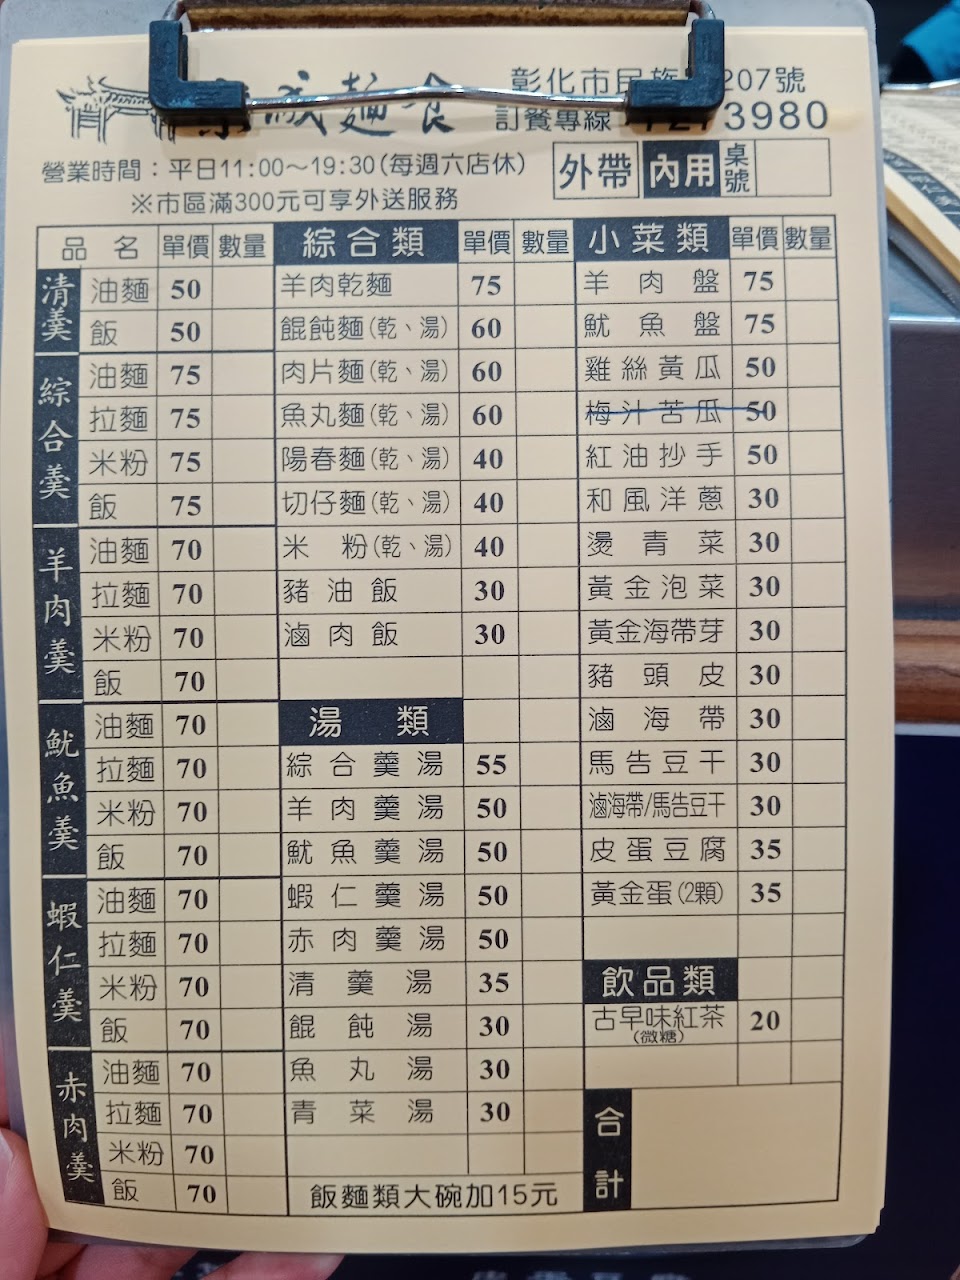 成麵食
彰化市民族 207號
訂餐專線 3980
營業時間：平日11:00～19:30(每週六店休)
※市區滿300元可享外送服務
外帶 內用 桌號
品名 單價 數量
清羹
油麵 50
飯 50
綜合羹
油麵 75
拉麵 75
米粉 75
飯 75
羊肉羹
油麵 70
拉麵 70
米粉 70
飯 70
魷魚羹
油麵 70
拉麵 70
米粉 70
飯 70
蝦仁羹
油麵 70
拉麵 70
米粉 70
飯 70
赤肉羹
油麵 70
拉麵 70
米粉 70
飯 70
綜合類 單價 數量
羊肉乾麵 75
餛飩麵(乾、湯) 60
肉片麵(乾、湯) 60
魚丸麵(乾、湯) 60
陽春麵(乾、湯) 40
切仔麵(乾、湯) 40
米粉(乾、湯) 40
豬油飯 30
滷肉飯 30
湯類
綜合羹湯 55
羊肉羹湯 50
魷魚羹湯 50
蝦仁羹湯 50
赤肉羹湯 50
清羹湯 35
餛飩湯 30
魚丸湯 30
青菜湯 30
飯麵類大碗加15元
小菜類 單價 數量
羊肉盤 75
魷魚盤 75
雞絲黃瓜 50
梅汁苦瓜 50
紅油抄手 50
和風洋蔥 30
燙青菜 30
黃金泡菜 30
黃金海帶芽 30
豬頭皮 30
滷海帶 30
馬告豆干 30
滷海帶/馬告豆干 30
皮蛋豆腐 35
黃金蛋(2顆) 35
飲品類
古早味紅茶 20
(微糖)
合計